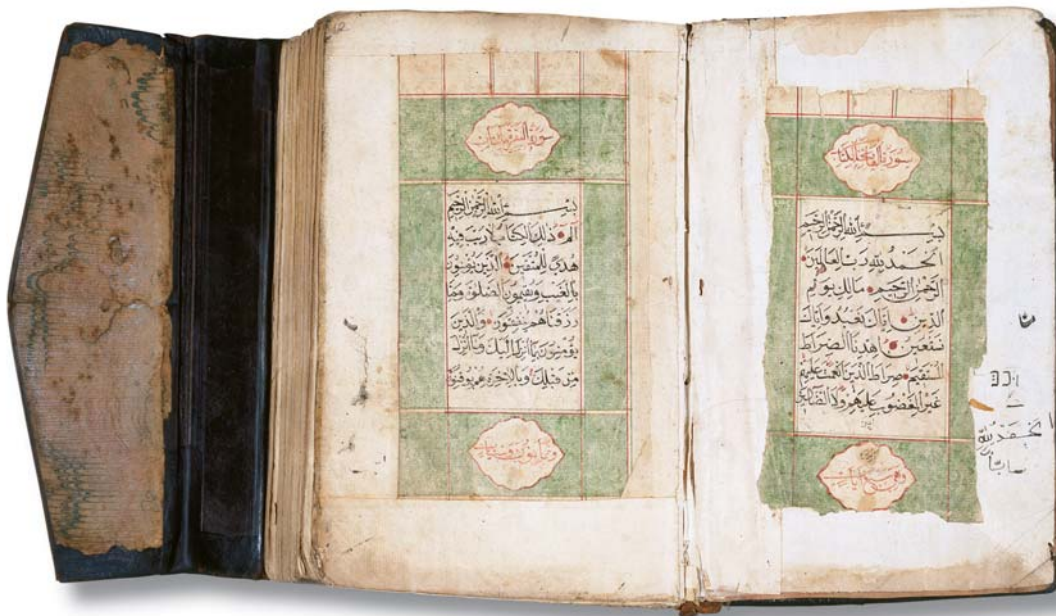 سورة الفاتحة الكتاب
بسم الله الرحمن الرحيم
الحمد لله رب العالمين
الرحمن الرحيم مالك يوم
الدين اياك نعبد واياك
نستعين اهدنا الصراط
المستقيم صراط الذين انعمت عليهم
غير المغضوب عليهم ولا الضالين
ايات
سورة البقرة مائتان
بسم الله الرحمن الرحيم
الم ذلك الكتاب لا ريب فيه
هدى للمتقين الذين يؤمنون
بالغيب ويقيمون الصلوة ومما
رزقناهم ينفقون والذين
يؤمنون بما انزل اليك وما انزل
من قبلك وبالاخرة هم يوقنون
وثمانون وست ايات